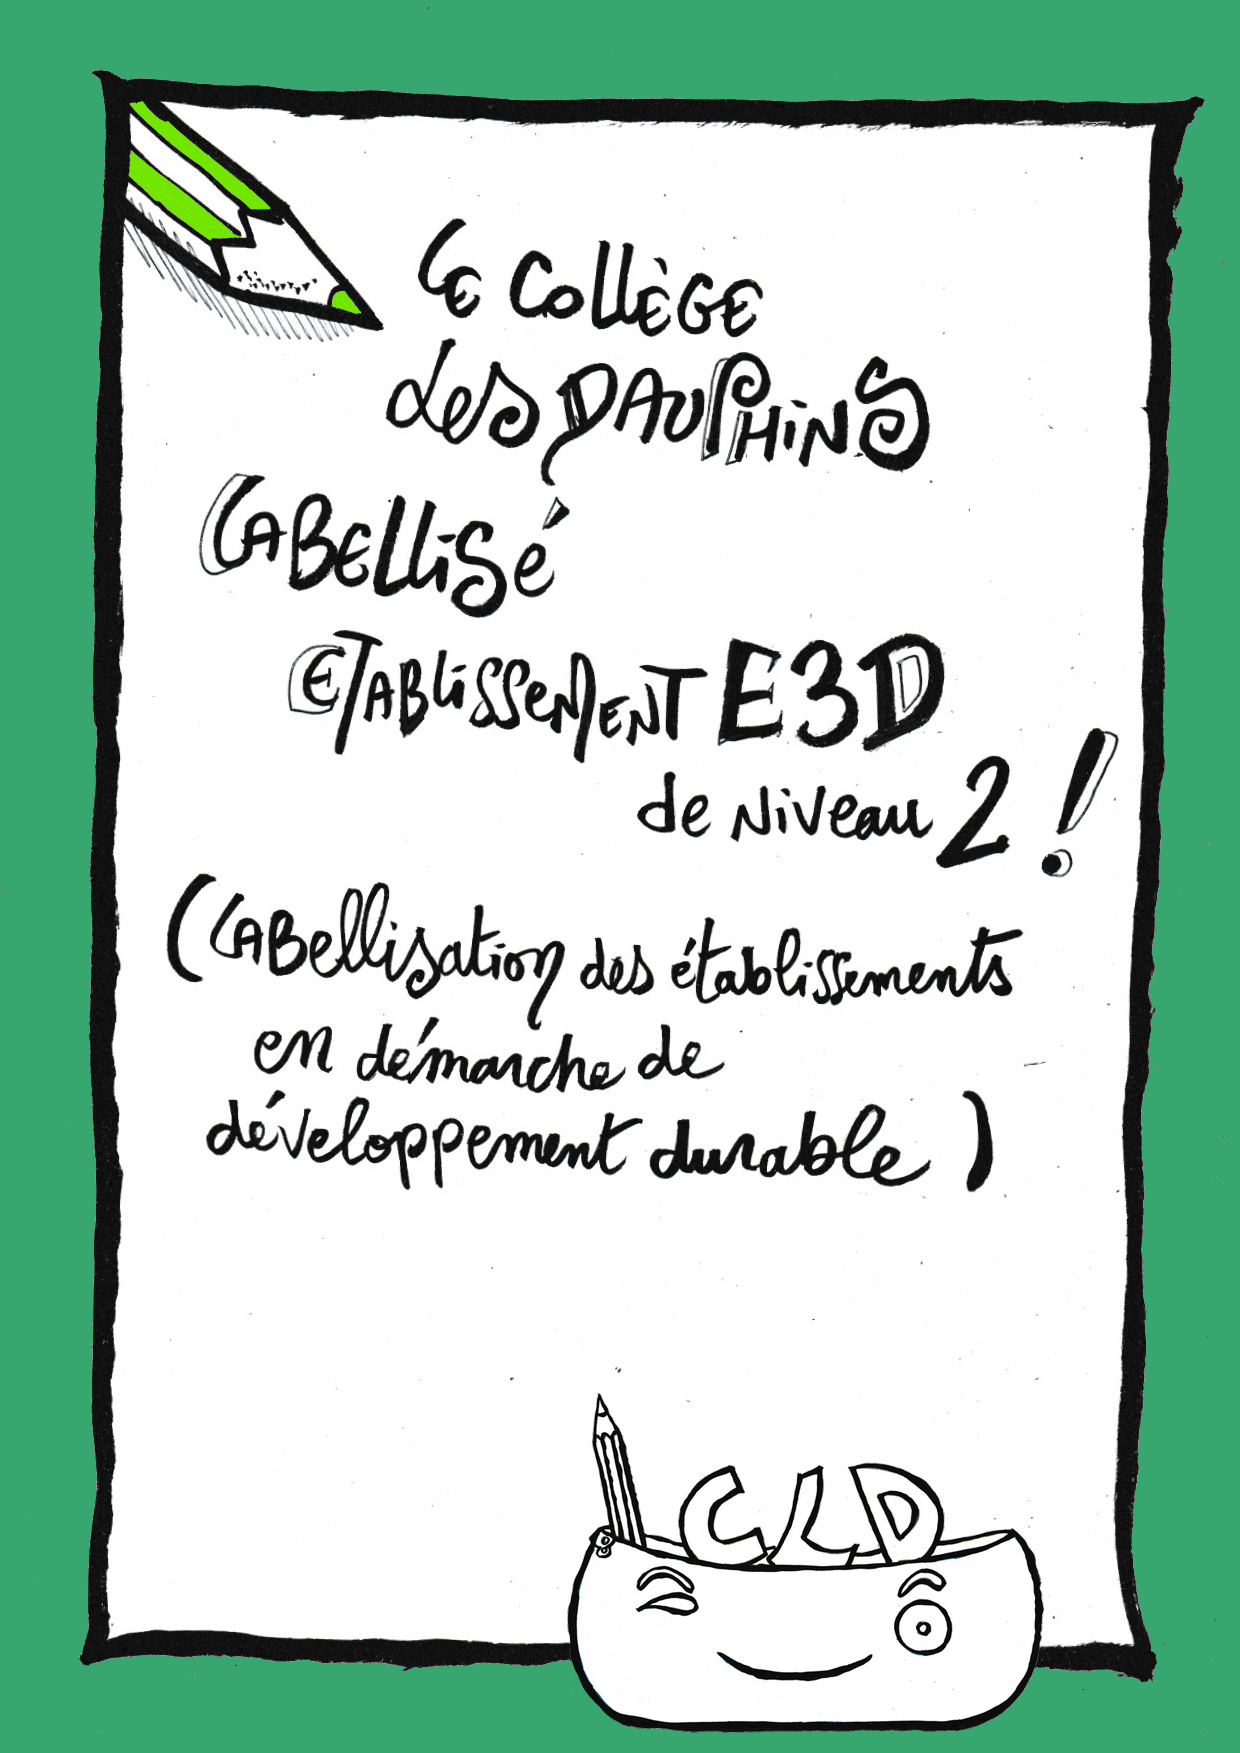 Le Collège
des Dauphins
Labellisé
Etablissement E3D
de niveau 2 !
(Labellisation des établissements
en démarche de
développement durable)
CLD